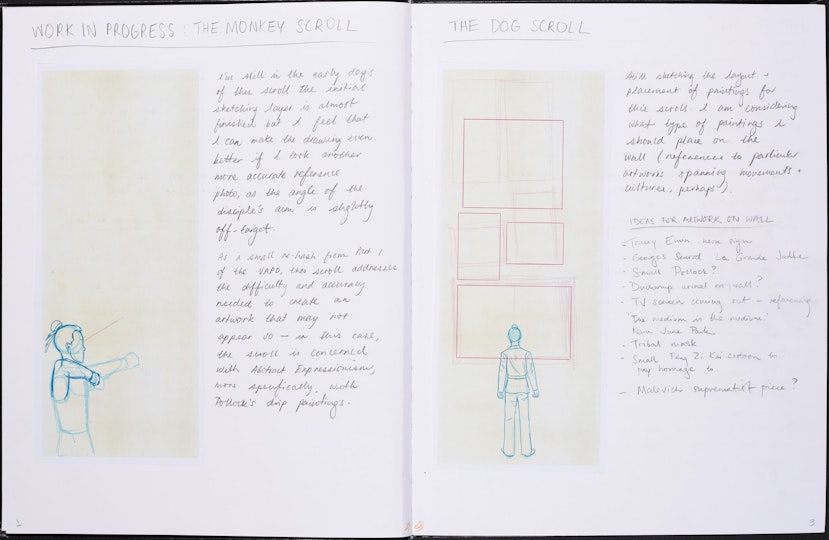 WORK IN PROGRESS : THE MONKEY SCROLL
I'm still in the early days
of this scroll. the initial
sketching layer is almost
finished but I feel that
I can make the drawing even
better if I took another
more accurate reference
photo, as the angle of the
disciple's aim is slightly
off-target.
As a small re-hash from Part 1
of the VAPD, this scroll addresses
the difficulty and accuracy
needed to create an
artwork that may not
appear so – in this case,
the scroll is concerned
with Abstract Expressionism,
more specifically, with
Pollock's drip paintings.
2
THE DOG SCROLL
Still sketching the layout +
placement of paintings for
this scroll. I am considering
what type of paintings I
should place on the
wall (references to particular
artworks spanning movements +
cultures, perhaps?).
IDEAS FOR ARTWORK ON WALL
- Tracey Emin neon sign
- Georges Seurat La Grande Jatte
- Small Pollock?
- Duchamp urinal on wall?
- TV screen coming out – referencing
'The medium is the medium.'
Nam June Paik
- Tribal mask
- Small Feng Zi Kai cartoon to
my homage to
- Malevich suprematist piece?
3